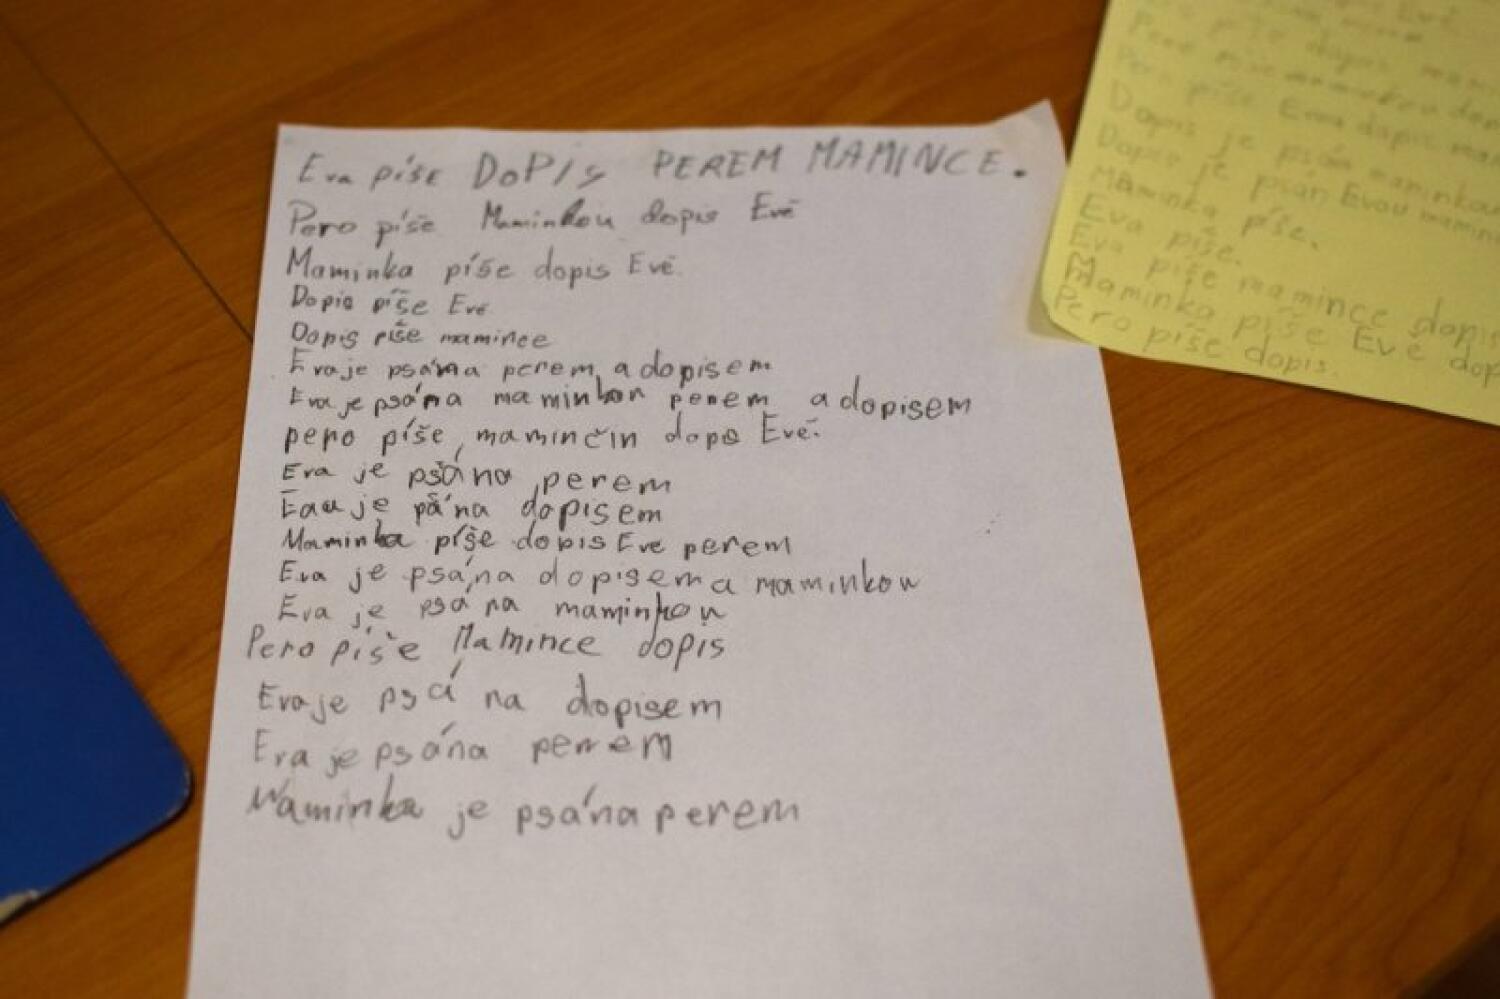 Eva píše DoPIs PEREM MAMINCE.
Pero píše Maminkou dopis Evě
Maminka píše dopis Evě.
Dopis píše Evě
Dopis píše mamince
Eva je psána perem a dopisem
Eva je psána maminkou perem a dopisem
pero píše maminčin dopis Evě.
Eva je psána perem
je pána dopisem
Maminka píše dopis Eve perem
Eva je psána dopisem a maminkou
Eva je psána maminkou
Pero píše Mamince dopis
Eva je psá na dopisem
Eva je psána perem
Maminka je psána perem
píše dopis
píše Evou dopis
Dopis je psán maminkou
Dopis je psán Evou
Maminka píše.
Eva píše.
Eva píše mamince dopis
Maminka píše Evě dop
Pero píše dopis.